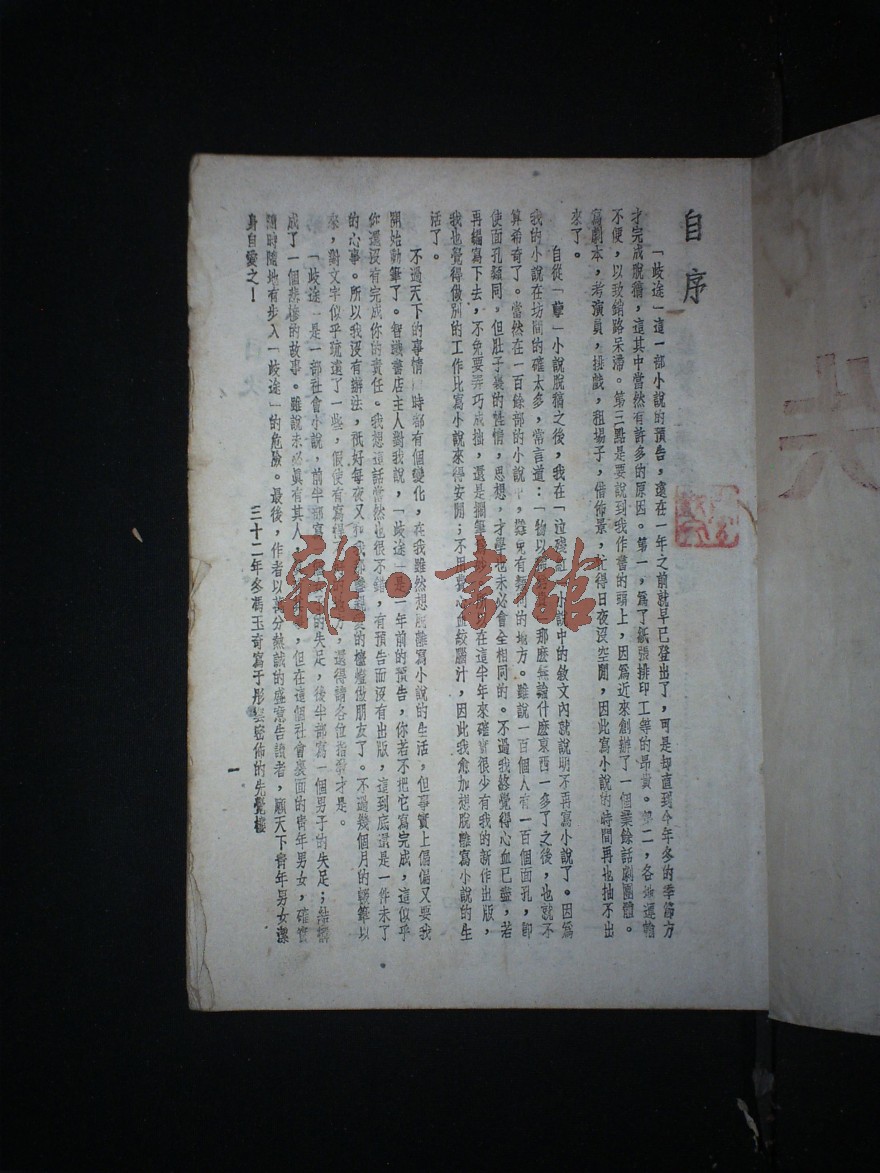 自序
「歧途」這一部小說的預告，還在一年之前就早已登出了，可是却直到今年冬的季節方
才完成脫稿，這其中當然有許多的原因。第一，爲了紙張排印工等的昂貴。第二，各地運輸
不便，以致銷路呆滯。第三點是要說到我作書的頭上，因爲近來創辦了一個業餘話劇團體。
寫劇本，考演員，排戲，租場子，借佈景，忙得日夜沒空閒，因此寫小說的時間再也抽不出
來了。
自從「孽」小說脫稿之後，我在「泣殘紅」小說中的敘文內就說明不再寫小說了。因爲
我的小說在坊間的確太多，常言道：「物以 那麽無論什麽東西一多了之後，也就不
算希奇了。當然在一百餘部的小說中，難免有 利的地方。雖說一百個人有一百個面孔，卽
使面孔類同，但肚子裏的性情，思想，才學也未必會全相同的。不過我終覺得心血已盡，若
再繼寫下去，不免要弄巧成拙，還是擱筆 在這半年來確實很少有我的新作出版，
我也覺得做別的工作比寫小說來得安閒；不用費心血絞腦汁，因此我愈加想脫離寫小說的生
活了。
不過天下的事情 時都有個變化，在我雖然想脫離寫小說的生活，但事實上偏偏又要我
開始動筆了。智識書店主人對我說，「歧途」是一年前的預告，你若不把它寫完成，這似乎
你還沒有完成你的責任。我想這話當然也很不錯，有預告而沒有出版，這到底還是一件未了
的心事。所以我沒有辦法，祇好每夜又和我 愛的檯燈做朋友了。不過幾個月的輟筆以
來，對文字似乎疏遠了一些，假使有寫得 方，還得請各位指教才是。
「歧途」是一部社會小說，前半部寫 的失足，後半部寫一個男子的失足；結構
成了一個悲慘的故事。雖說未必眞有其人 ，但在這個社會裏面的靑年男女，確實
隨時隨地有步入「歧途」的危險。最後，作者以萬分熱誠的盛意告讀者，願天下靑年男女潔
身自愛之！
三十二年冬馮玉奇寫于彤雲密佈的先覺樓
一
雜·書館